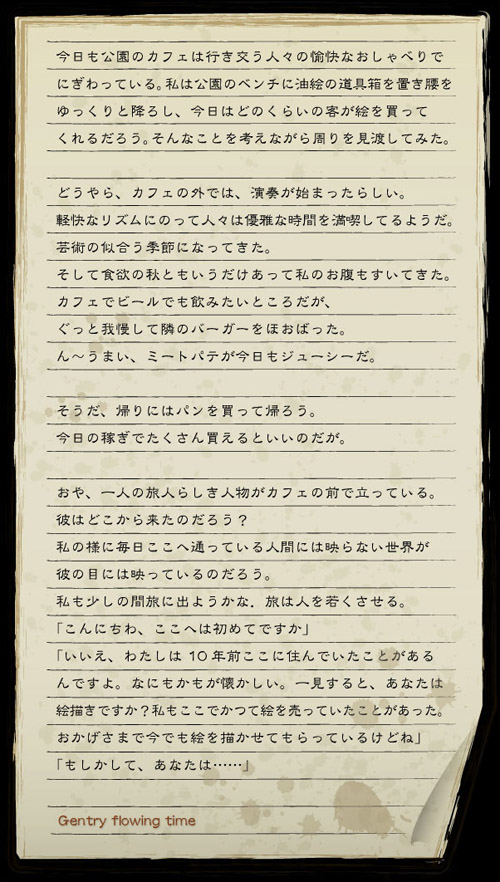 今日も公園のカフェは行き交う人々の愉快なおしゃべりで
にぎわっている。私は公園のベンチに油絵の道具箱を置き腰を
ゆっくりと降ろし、今日はどのくらいの客が絵を買って
くれるだろう。そんなことを考えながら周りを見渡してみた。
どうやら、カフェの外では、演奏が始まったらしい。
軽快なリズムにのって人々は優雅な時間を満喫してるようだ。
芸術の似合う季節になってきた。
そして食欲の秋ともいうだけあって私のお腹もすいてきた。
カフェでビールでも飲みたいところだが、
ぐっと我慢して隣のバーガーをほおばった。
ん～うまい、ミートパテが今日もジューシーだ。
そうだ、帰りにはパンを買って帰ろう。
今日の稼ぎでたくさん買えるといいのだが。
おや、一人の旅人らしき人物がカフェの前で立っている。
彼はどこから来たのだろう？
私の様に毎日ここへ通っている人間には映らない世界が
彼の目には映っているのだろう。
私も少しの間旅に出ようかな．旅は人を若くさせる。
「こんにちわ、ここへは初めてですか」
「いいえ、わたしは 10 年前ここに住んでいたことがある
んですよ。なにもかもが懐かしい。一見すると、あなたは
絵描きですか？私もここでかつて絵を売っていたことがあった。
おかげさまで今でも絵を描かせてもらっているけどね」
「もしかして、あなたは……」
Gentry flowing time